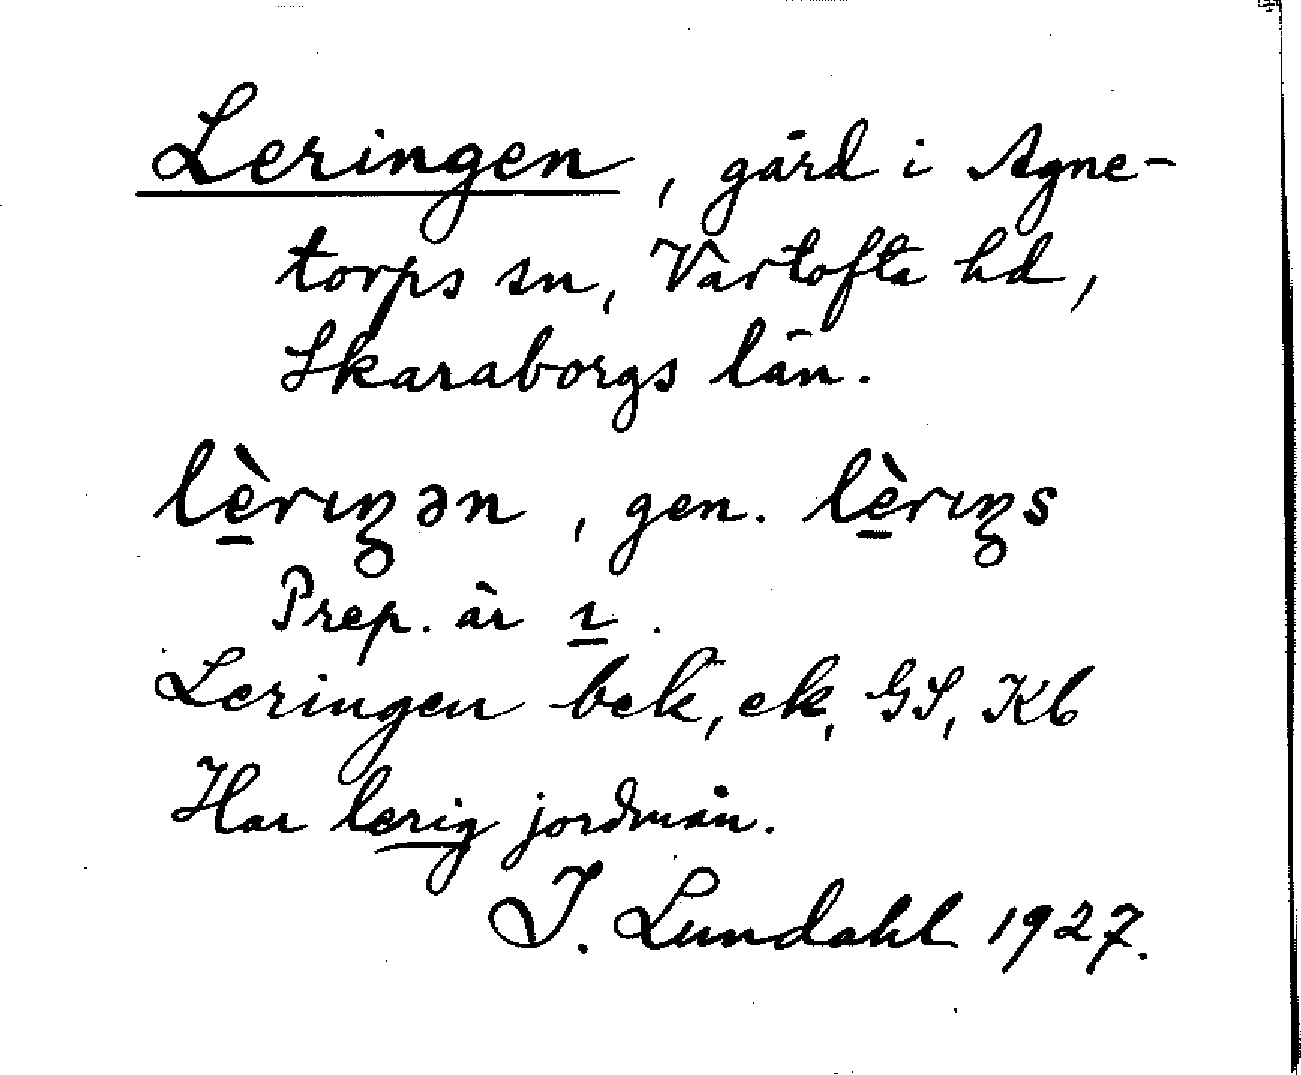 Leringen, gård i Agne-
torps sn, Vartofta hd,
Skaraborgs län.
lè̱rıŋən, gen. lè̱rıŋs
Prep. är ı̱.
Leringen bek, ek, GS, Kb
Har lerig jordmån.
I. Lundahl 1927.